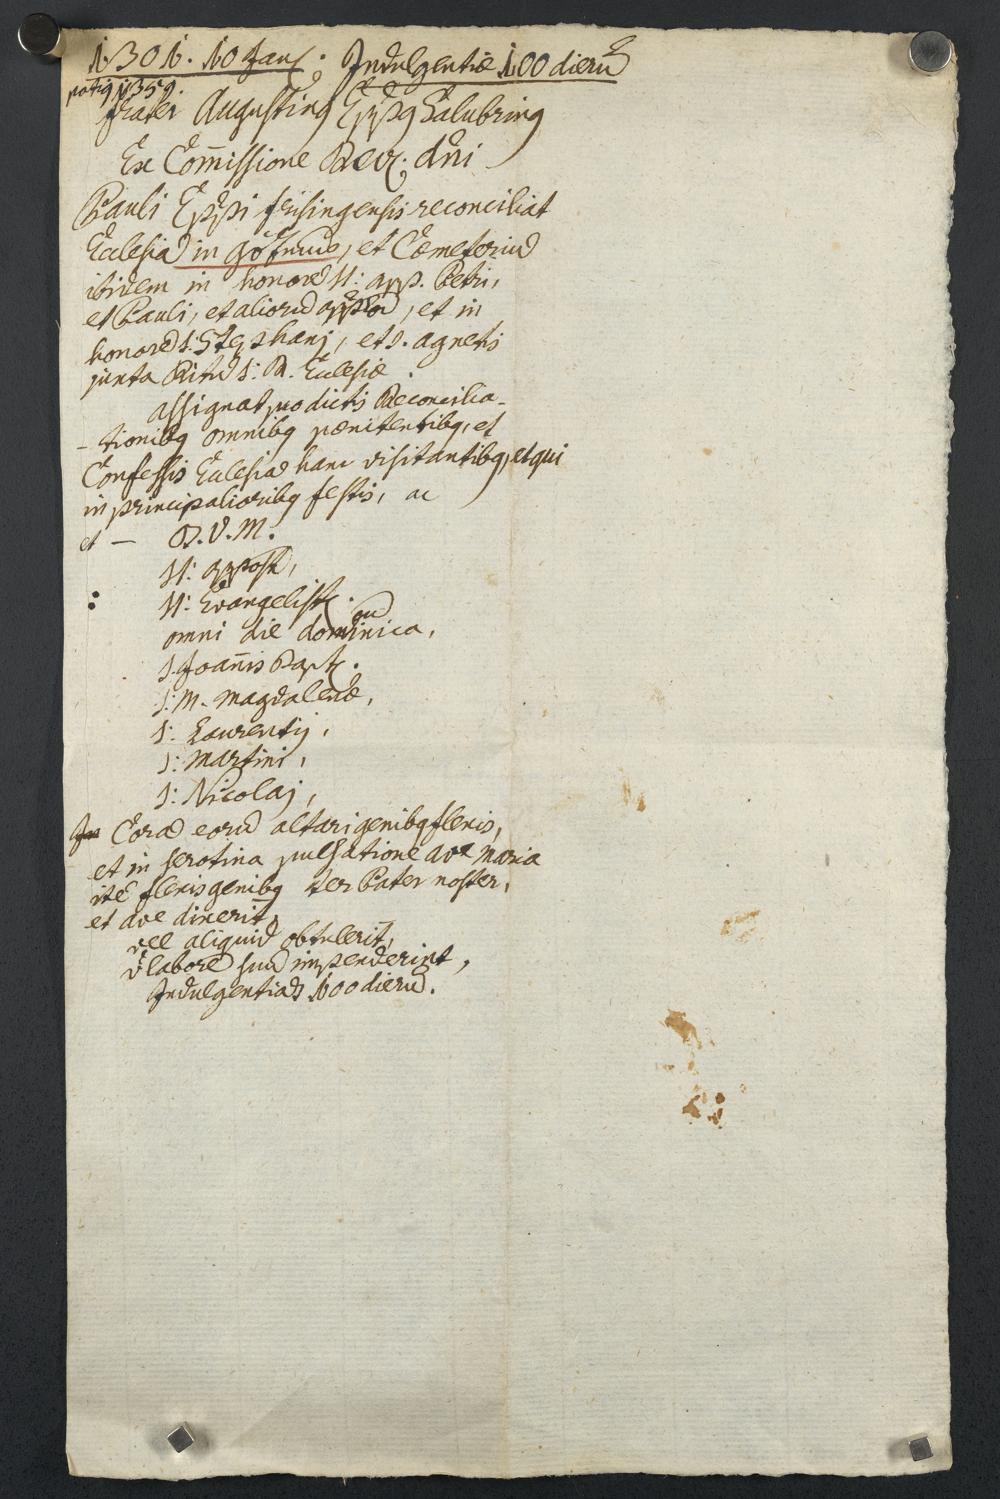 1301. 10 Jan: Indulgentiæ 100 dierū
potiq 1359.
frater Augustinq Eppq Salubrinq
Ex Com̄issione Rev: dn̄i
Pauli Eppi frisingensis reconciliat
Ecclesiā in , et Cœmeteriū
ibidem in honorē SS: app. Petri,
et Pauli, et aliorū , et in
honorē S. Stephanj, et S. agnetis
juxta Ritū S: R. Ecclesiæ
assignat pro dictis Reconcilia-
-tionibq omnibq pœnitentibq, et
Confessis Ecclesiā hanc visitantibq, et qui
in principalioribq festis, ac
et — B. V. M.
SS: appost,
: SS: Evangelist.
omni die dominica,
S. Joan̄is Bapt.
S: M. Magdalenæ,
S: Laurentij,
S: Martini,
S: Nicolaj,
Corā eorū altari genibq flexis,
et in serotina pulsatione ave Maria
itē flexis genibq ter Pater noster,
et ave dixerit,
vel aliquid obtulerit,
v̄ labore suū impenderint,
Indulgentias 100 dierū.